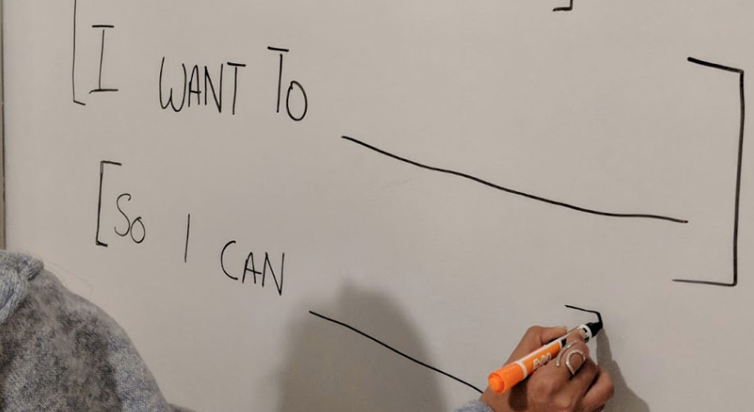 [I WANT TO ________ ]
[SO I CAN ________ ]